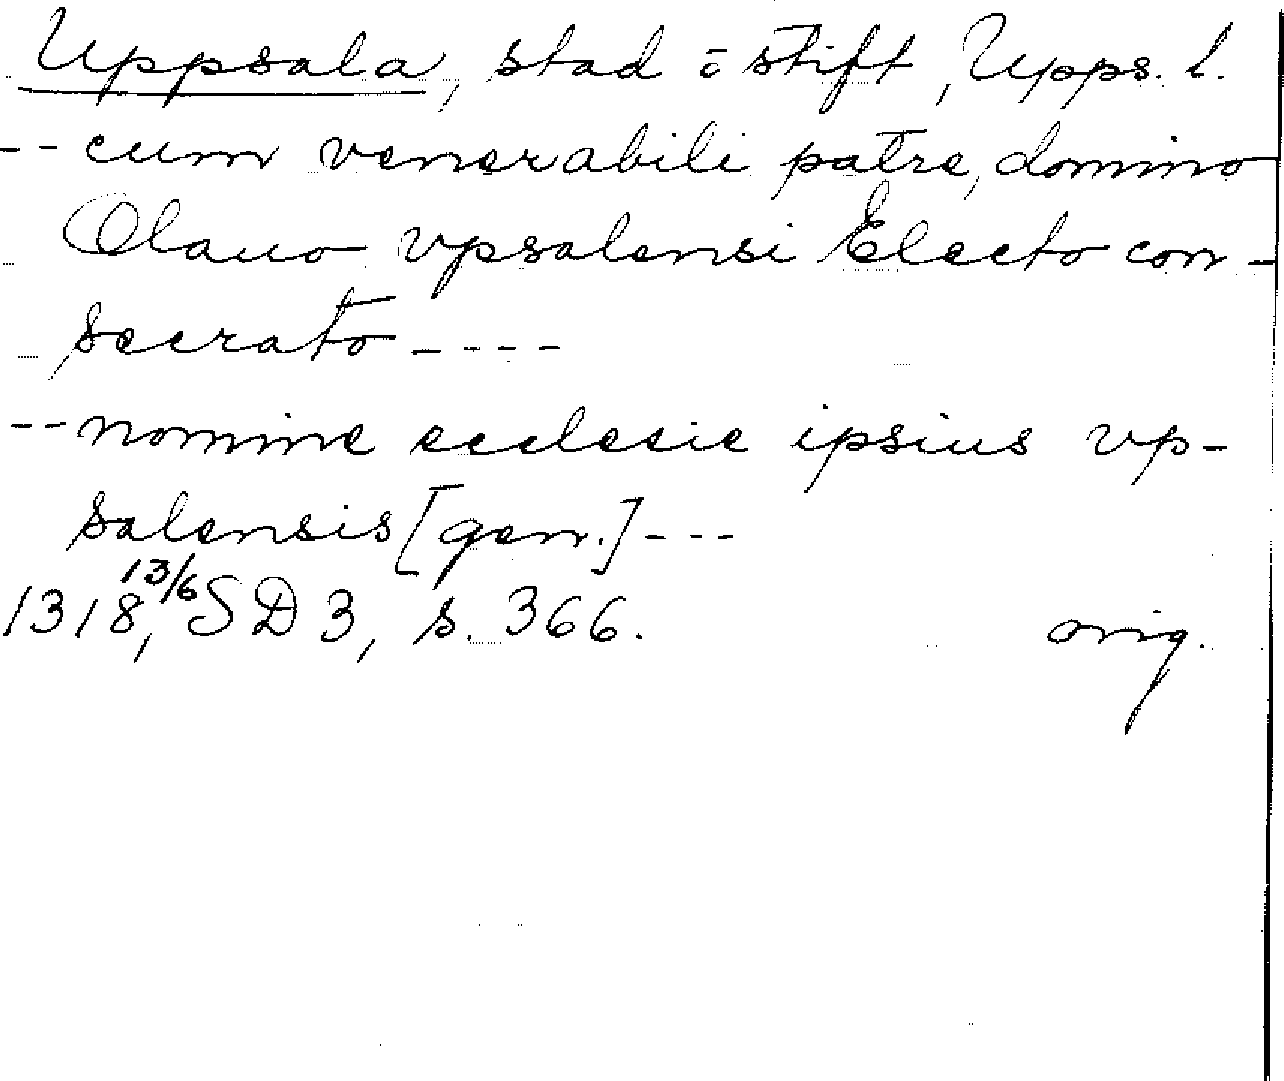 Uppsala, stad o stift, Upps. l.
-- cum venerabili patre, domino
Olauo vpsalensi Electo con-
secrato ----
-- nomine ecclesie ipsius vp-
salensis [gen.] ---
1318, 13/6 SD 3, s. 366. orig.